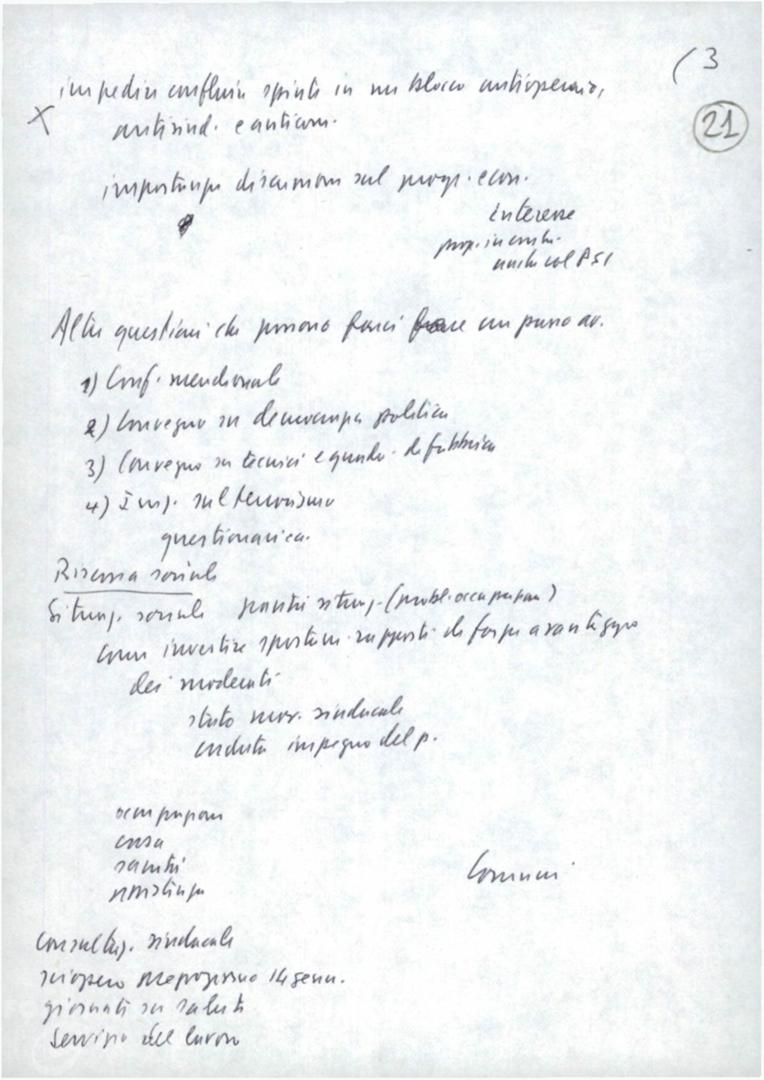 (3
21
impedire confluire spinte in un blocco antioperaio,
X antisind. e anticom.
importanza discussioni sul progr. econ.
interesse
prop. incontr.
anche col PSI
Altre questioni che possono farci fare un passo av.
1) Conf. meridionale
2) Convegno su democrazia politica
3) Convegno su tecnici e quadri di fabbrica
4) Iniz. sul terrorismo
questionario.
Ripresa sociale
Situaz. sociale (probl. occupazione)
come investire spostam. rapporti di forza a vantaggio
dei moderati
stato mov. sindacale
caduta impegno del p.
occupazione
casa
sanità
assistenza
Comuni
Consultaz. sindacale
sciopero Mezzogiorno 14 genn.
giornata su salute
Servizio del lavoro